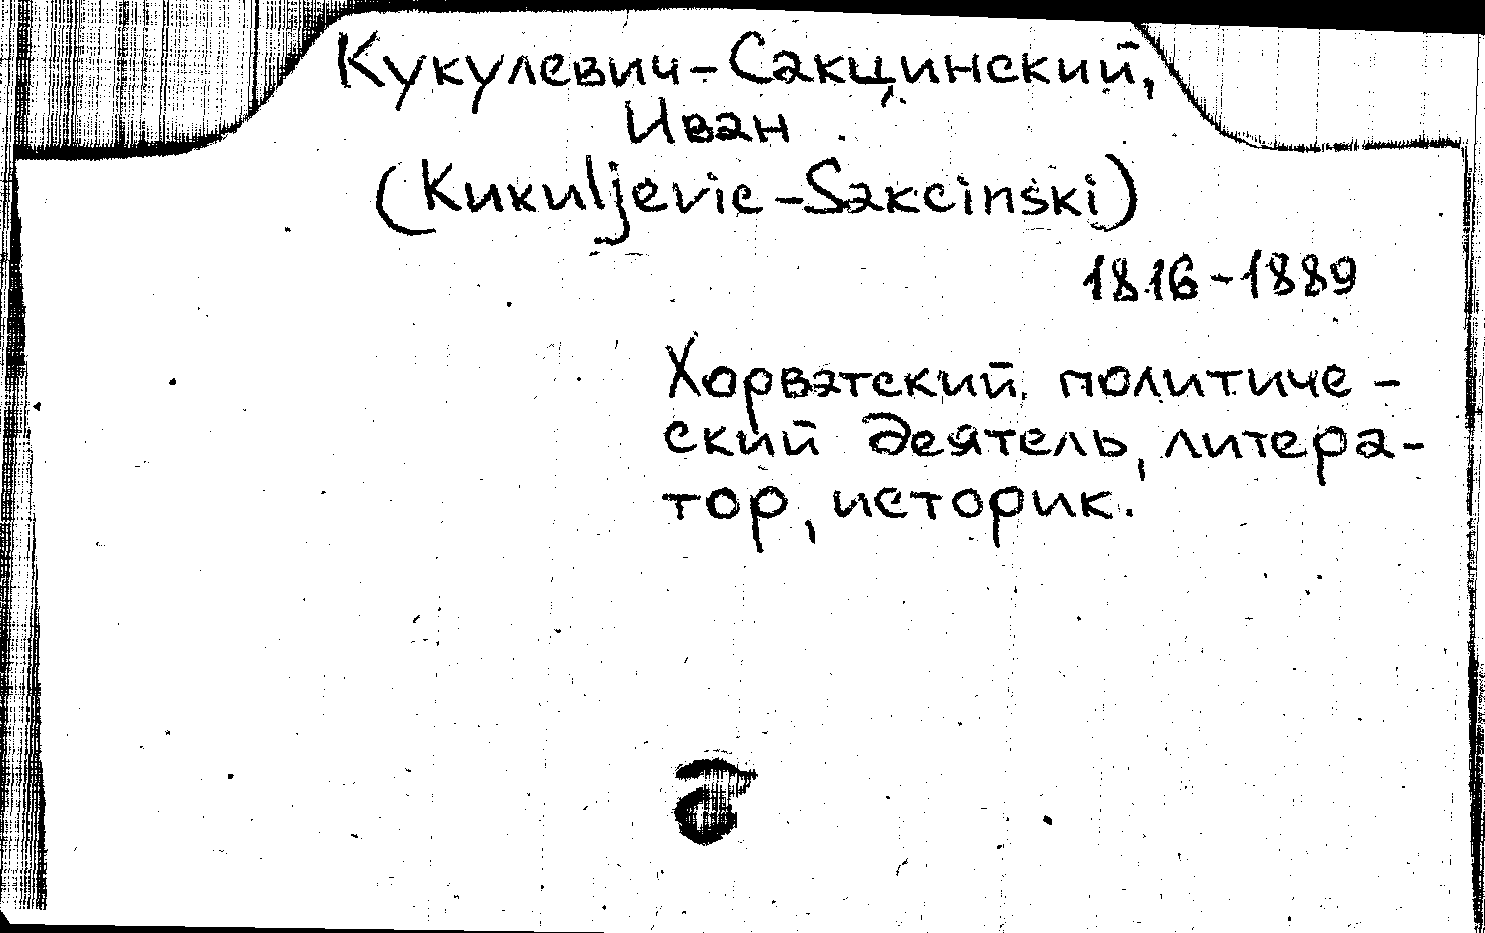 Кукулевич-Сакцинский,
Иван
(Kukuljevic-Sakcinski)
1816-1889
Хорватский политиче-
ский деятель, литера-
тор, историк.